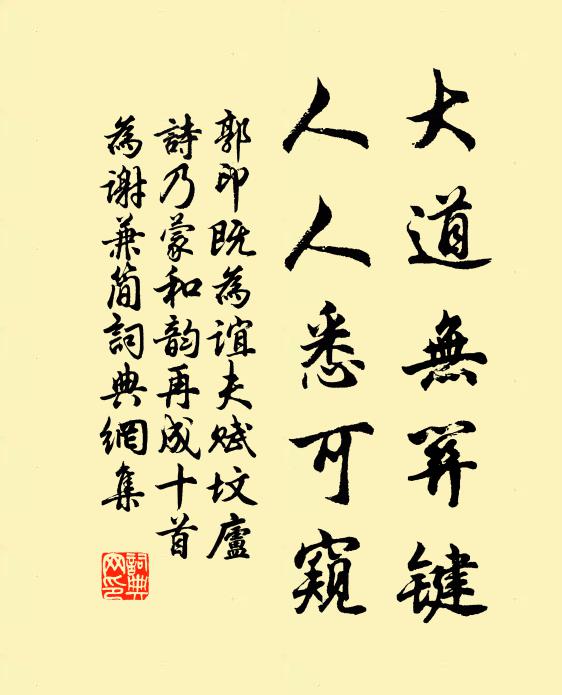 大道無關鍵
人人悉可窺
郭印既為誼夫賦坟廬
詩乃蒙和韵再成十首
為謝兼簡詞典網集
詞典
网印